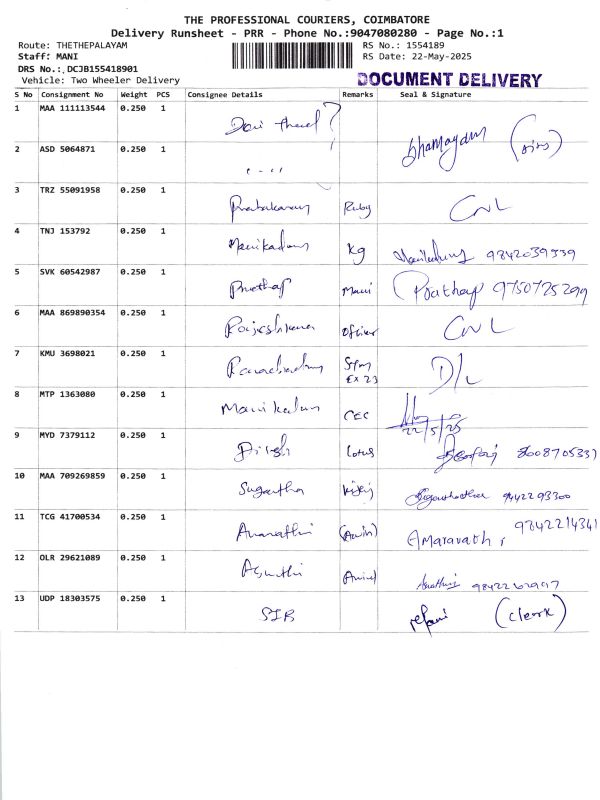 THE PROFESSIONAL COURIERS, COIMBATORE
Delivery Runsheet - PRR - Phone No.:9047080280 - Page No.:1
Route: THETHEPALAYAM RS No.: 1554189
Staff: MANI RS Date: 22-May-2025
DRS No.:.DCJB155418901
Vehicle: Two Wheeler Delivery DOCUMENT DELIVERY
S No Consignment No Weight PCS Consignee Details Remarks Seal & Signature
1 MAA 111113544 0.250 1
2 ASD 5064871 0.250 1
3 TRZ 55091958 0.250 1 Prabakaran Ruby
4 TNJ 153792 0.250 1 Manikadan Kg 9842039339
5 SVK 60542987 0.250 1 Prathap Mani Prathap 9750725299
6 MAA 869890354 0.250 1 Rajeshkumar Officer
7 KMU 3698021 0.250 1 Ex 23 D/L
8 MTP 1363080 0.250 1 Manikadan CEC 22/5/25
9 MYD 7379112 0.250 1 Lotus 8008705337
10 MAA 709269859 0.250 1 Sugantha 9842293300
11 TCG 41700534 0.250 1 Amaravathi 9842214341
12 OLR 29621089 0.250 1
13 UDP 18303575 0.250 1 SIB (Clerk)